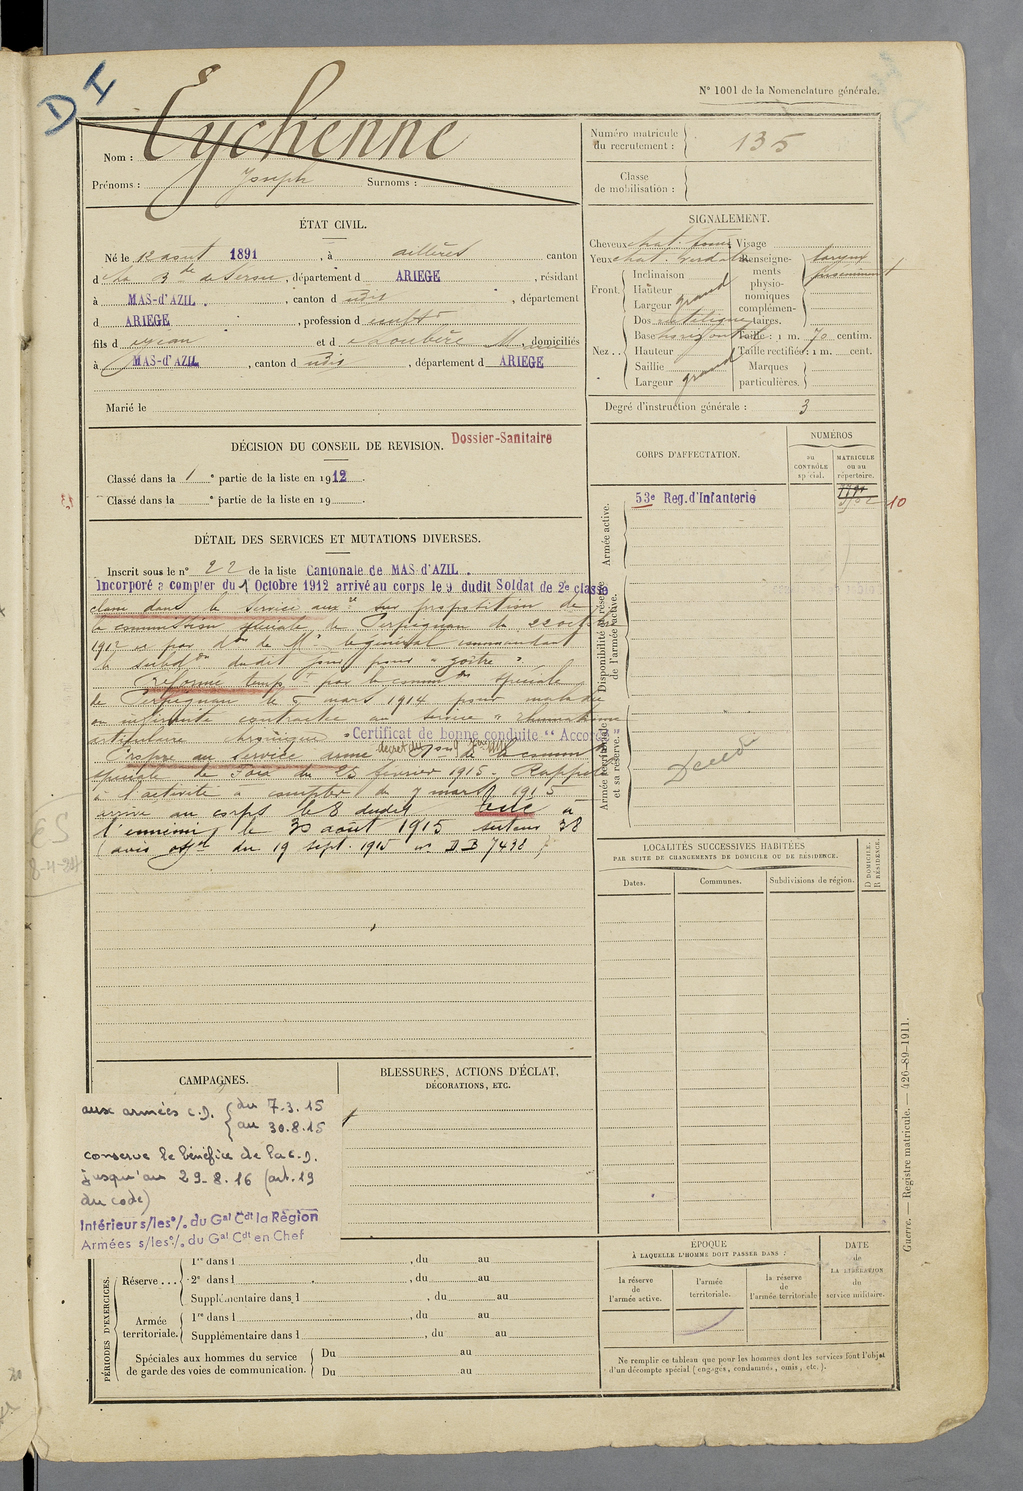 D I
N° 1001 de la Nomenclature générale.
Nom : Eychenne
Prénoms : Joseph Surnoms :
Numéro matricule du recrutement : 135
Classe de mobilisation :
ÉTAT CIVIL.
Né le 12 août 1891, à aillères canton
d de Serou, département d ARIEGE, résidant
à MAS-d'AZIL, canton d udit, département
d ARIEGE, profession d
fils d et d Loubère domiciliés
à MAS-d'AZIL, canton d udit, département d ARIEGE
Marié le
SIGNALEMENT.
Cheveux chat. Visage
Yeux chat. verdâtre Renseignements physionomiques complémentaires.
Front. Inclinaison
Hauteur grand
Largeur
Nez.. Dos rectiligne
Base horizontale Taille : 1 m. 70 centim.
Hauteur Taille rectifiée : 1 m. cent.
Saillie Marques particulières.
Largeur grand
Degré d'instruction générale : 3
DÉCISION DU CONSEIL DE REVISION. Dossier-Sanitaire
Classé dans la 1e partie de la liste en 1912.
Classé dans la e partie de la liste en 19
CORPS D'AFFECTATION.
NUMÉROS
au CONTRÔLE spécial.
MATRICULE ou au répertoire.
Armée active.
53e Reg. d'Infanterie
10
Disponibilité et réserve de l'armée active.
Armée territoriale et sa réserve.
Décédé
DÉTAIL DES SERVICES ET MUTATIONS DIVERSES.
Inscrit sous le n° 22 de la liste Cantonale de MAS d'AZIL.
Incorporé à compter du 1 Octobre 1912 arrivé au corps le 9 dudit Soldat de 2e classe
classé dans le service aux re sur proposition de
la commission spéciale de Perpignan du 22 oct
1912 et par don de Mr le général commandant
la subdon dudit jour pour "goître"
Réformé temp re par la comm on spéciale
de Perpignan le 5 mars 1914 pour maladie
ou infirmité contractée au service "rhumatisme
articulaire chronique" Certificat de bonne conduite "Accordé"
Propre au service armé de la comm
spéciale de Foix du 23 février 1915. Rappelé
à l'activité à compter du 7 mars 1915
arrivé au corps le 8 dudit Tué à
l'ennemi le 30 août 1915 secteur 38
(avis off el du 19 sept. 1915 n° DB 7438)
LOCALITÉS SUCCESSIVES HABITÉES
PAR SUITE DE CHANGEMENTS DE DOMICILE OU DE RÉSIDENCE.
Dates. Communes. Subdivisions de région. D DOMICILE. R RÉSIDENCE.
CAMPAGNES.
aux armées C.D. du 7.3.15
au 30.8.15
conserve le bénéfice de la C.D.
jusqu'au 29.8.16 (art. 19
du code)
Intérieur s/les o/. du Gal Cdt la Région
Armées s/les o/. du Gal Cdt en Chef
BLESSURES, ACTIONS D'ÉCLAT,
DÉCORATIONS, ETC.
PÉRIODES D'EXERCICES.
Réserve...
1re dans l , du au
2e dans l , du au
Supplémentaire dans l , du au
Armée territoriale.
1re dans l , du au
Supplémentaire dans l , du au
Spéciales aux hommes du service de garde des voies de communication.
Du au
Du au
ÉPOQUE
À LAQUELLE L'HOMME DOIT PASSER DANS :
la réserve de l'armée active.
l'armée territoriale.
la réserve de l'armée territoriale
DATE de LA LIBÉRATION du service militaire.
Ne remplir ce tableau que pour les hommes dont les services font l'objet
d'un décompte spécial (engagés, condamnés, omis, etc.).
Guerre. — Registre matricule. — 426-89-1911.